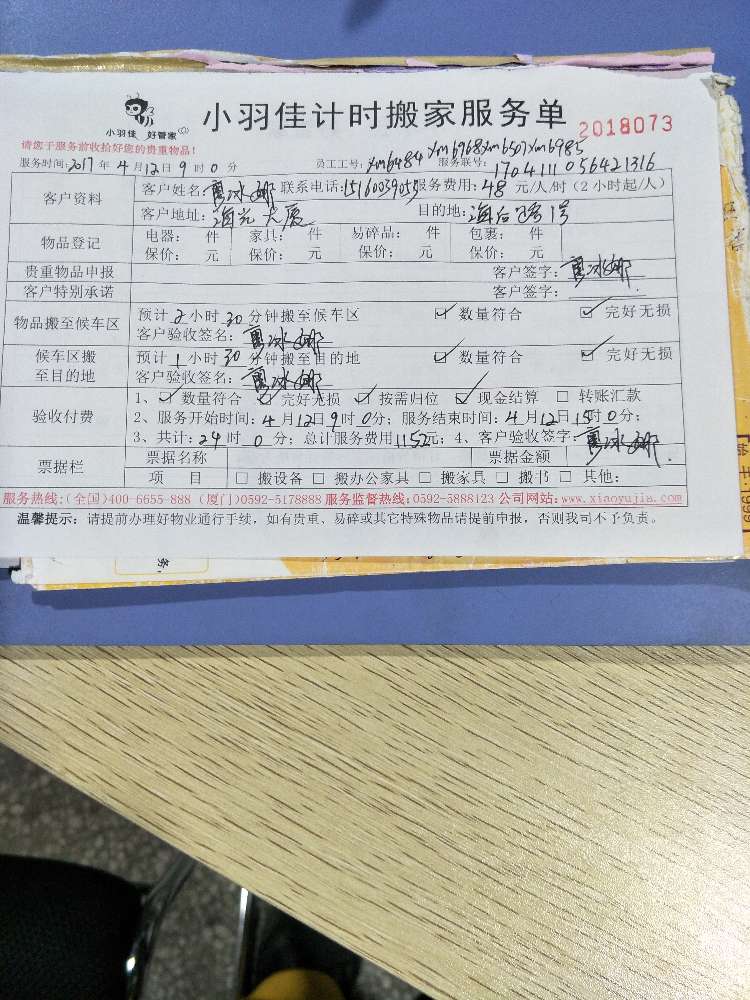 小羽佳 好管家
小羽佳计时搬家服务单
2018073
请您于服务前收拾好您的贵重物品!
服务时间:2017年4月12日9时0分 员工工号:xm6484 xm6968 xm6507 xm6985 服务联号:170411056421316
客户资料
客户姓名: 冰娜 联系电话:15160039055 服务费用:48元/人/时(2小时起/人)
客户地址:海光大厦 目的地:海后路1号
物品登记
电器: 件 家具: 件 易碎品: 件 包裹: 件
保价: 元 保价: 元 保价: 元 保价: 元
贵重物品申报 客户签字: 冰娜
客户特别承诺 客户签字:
物品搬至候车区
预计2小时30分钟搬至候车区 ☑数量符合 ☑完好无损
客户验收签名: 冰娜
候车区搬至目的地
预计1小时30分钟搬至目的地 ☑数量符合 ☑完好无损
客户验收签名: 冰娜
验收付费
1、☑数量符合 ☑完好无损 ☑按需归位 ☑现金结算 □转账汇款
2、服务开始时间:4月12日9时0分; 服务结束时间:4月12日15时0分;
3、共计:24时0分; 总计服务费用1152元; 4、客户验收签字: 冰娜
票据栏
票据名称 票据金额
项 目 □搬设备 □搬办公家具 □搬家具 □搬书 □其他:
服务热线:(全国)400-6655-888 (厦门)0592-5178888 服务监督热线:0592-5888123 公司网站:www.xiaoyujia.com
温馨提示: 请提前办理好物业通行手续, 如有贵重、易碎或其它特殊物品请提前申报, 否则我司不予负责。
务: